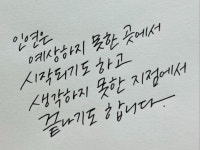 인연은
예상하지 못한 곳에서
시작되기도 하고
생각하지 못한 지점에서
끝나기도 합니다.